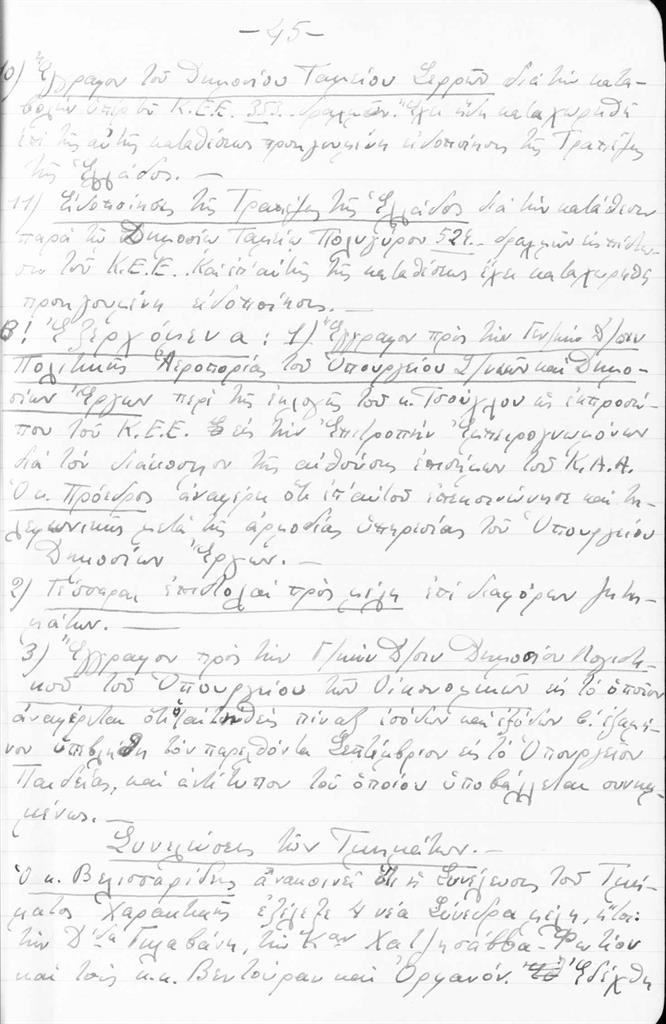 -45-
10) Ἔγγραφον τοῦ Δημοσίου Ταμείου Σερρῶν διὰ τὴν κατα-
βολὴν ὑπὲρ τοῦ Κ.Ε.Ε. 353.- δραχμῶν. Ἔχει ἤδη καταχωρηθῆ
ἐπὶ τῆς αὐτῆς καταθέσεως προηγουμένη εἰδοποίησις τῆς Τραπέζης
τῆς Ἑλλάδος. —
11) Εἰδοποίησις τῆς Τραπέζης τῆς Ἑλλάδος διὰ τὴν κατάθεσιν
παρὰ τῷ Δημοσίῳ Ταμείῳ Πολυγύρου 524.- δραχμῶν εἰς πίστω-
σιν τοῦ Κ.Ε.Ε. Καὶ ἐπ' αὐτῆς τῆς καταθέσεως ἔχει καταχωρηθῆ
προηγουμένη εἰδοποίησις. —
Β! Ἐξερχόμενα: 1) Ἔγγραφον πρὸς τὴν Γεν/κὴν Δ/σιν
Πολιτικῆς Ἀεροπορίας τοῦ Ὑπουργείου Σ/νιῶν καὶ Δημο-
σίων Ἔργων περὶ τῆς ἐκλογῆς τοῦ κ. Τσούχλου ὡς ἐκπροσώ-
που τοῦ Κ.Ε.Ε. εἰς τὴν Ἐπιτροπὴν Ἐμπειρογνωμόνων
διὰ τὸν διάκοσμον τῆς αἰθούσης ἐπισήμων τοῦ Κ.Α.Α.
Ὁ κ. Πρόεδρος ἀναφέρει ὅτι ἐπ' αὐτοῦ ἐπεκοινώνησε καὶ τη-
λεφωνικῶς μετὰ τῆς ἁρμοδίας ὑπηρεσίας τοῦ Ὑπουργείου
Δημοσίων Ἔργων. —
2) Τέσσαραι ἐπιστολαὶ πρὸς μέλη ἐπὶ διαφόρων ζητη-
μάτων. —
3) Ἔγγραφον πρὸς τὴν Γ/κὴν Δ/σιν Δημοσίου Λογιστι-
κοῦ τοῦ Ὑπουργείου τῶν Οἰκονομικῶν εἰς τὸ ὁποῖον
ἀναφέρεται ὅτι ὁ αἰτηθεὶς πίναξ ἐσόδων καὶ ἐξόδων β' ἑξαμή-
νου ὑπεβλήθη τὸν παρελθόντα Σεπτέμβριον εἰς τὸ Ὑπουργεῖον
Παιδείας, καὶ ἀντίτυπον τοῦ ὁποίου ὑποβάλλεται συνημ-
μένως. —
Συνελεύσεις τῶν Τμημάτων. —
Ὁ κ. Βελισσαρίδης ἀνακοινεῖ ὅτι ἡ Συνέλευσις τοῦ Τμή-
ματος Χαρακτικῆς ἐξέλεξε 4 νέα Σύνεδρα μέλη, ἤτοι:
τὴν Δ/δα Γιλαβάνη, τὴν Καν Χατζησάββα-Φωτίου
καὶ τοὺς κ.κ. Βεντούραν καὶ Ὀρφανόν. Ἐδέχθη